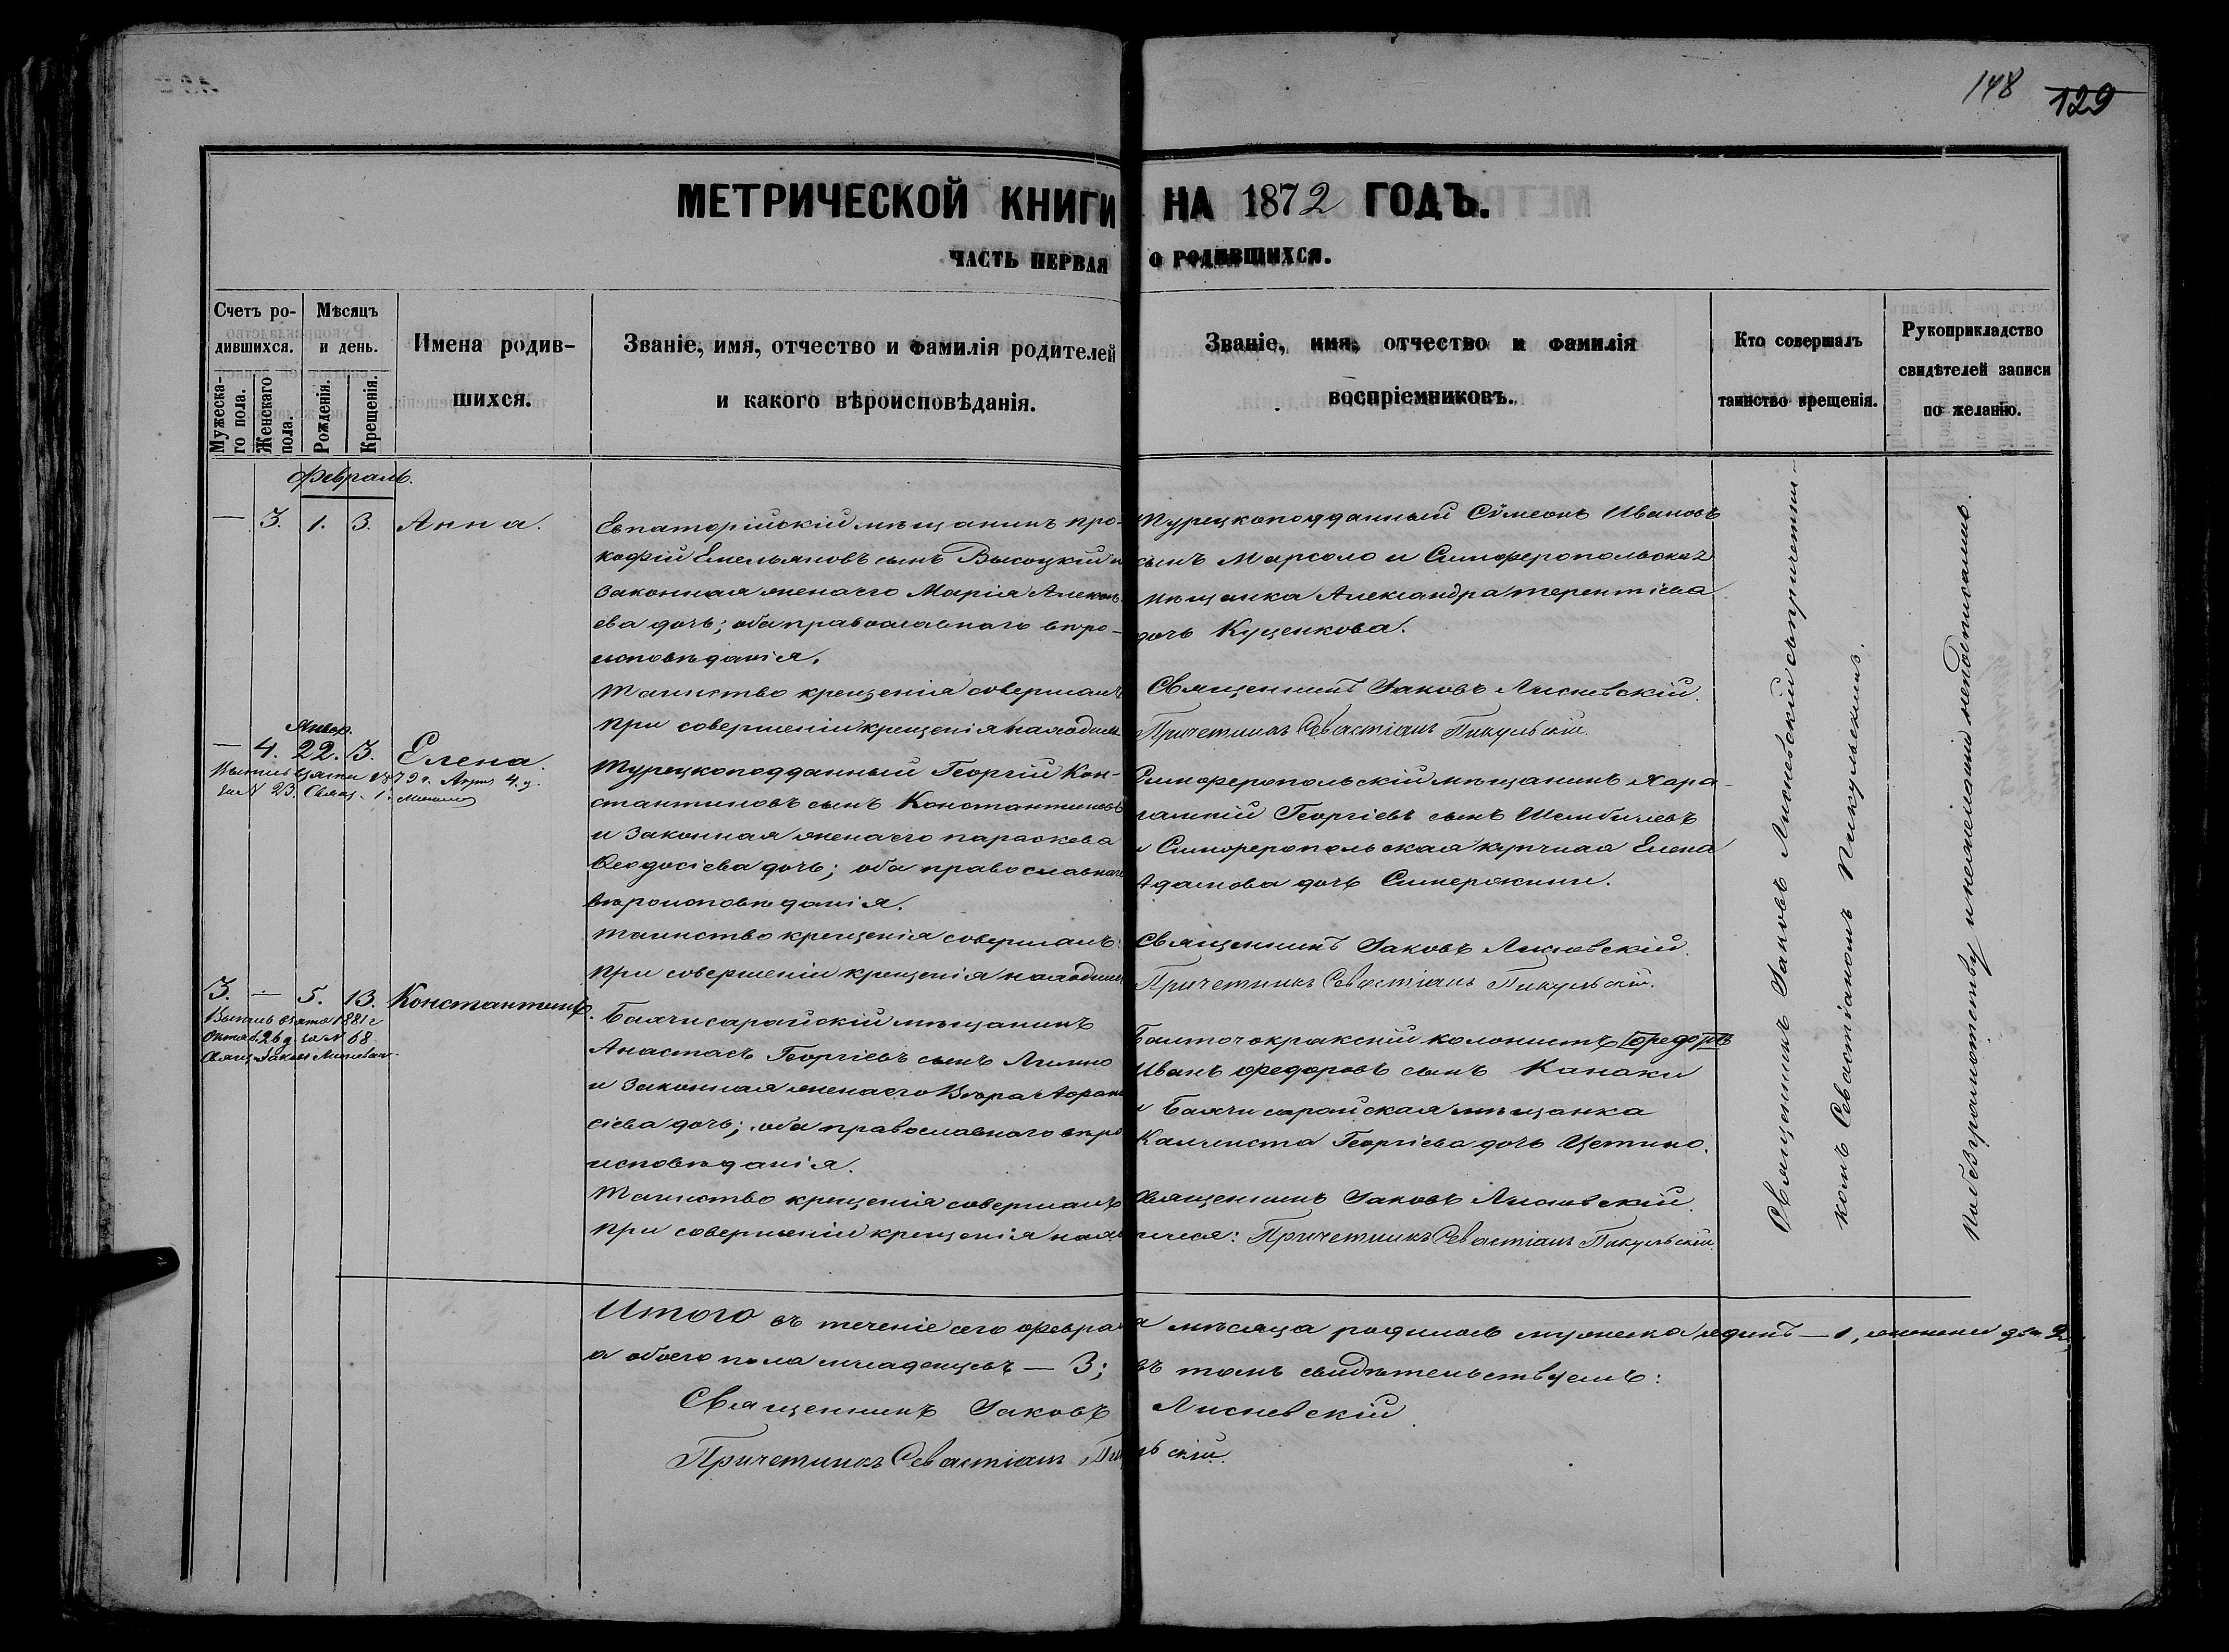 148 129
МЕТРИЧЕСКОЙ КНИГИ НА 1872 ГОДЪ.
ЧАСТЬ ПЕРВАЯ О РОДИВШИХСЯ.
Счетъ ро-
дившихся.
Мужеска-
го пола.
Женскаго
пола.
Мѣсяцъ
и день.
Рожденія.
Крещенія.
Имена родив-
шихся.
Званіе, имя, отчество и фамилія родителей
и какого вѣроисповѣданія.
Званіе, имя, отчество и фамилія
воспріемниковъ.
Кто совершалъ
таинство крещенія.
Рукоприкладство
свидѣтелей записи
по желанію.
Февраль.
— 3. 1. 3. Анна.
Евпаторійскій мѣщанинъ Про-
кофій Емельяновъ сынъ Высоцкій и
законная жена его Марія Алексѣ-
ева дочь; оба православнаго вѣро-
исповѣданія.
Таинство крещенія совершалъ
При совершеніи крещенія находился
Турецкоподданный Сѵмеонъ Ивановъ
сынъ Марсоло и Симферопольская
мѣщанка Александра Терентіева
дочь Куценкова.
Священникъ Іаковъ Лисневскій.
Причетникъ Севастіанъ Пикульскій.
Январ.
— 4. 22. 13. Елена.
Выпись взята 1879 г. Апрѣ 4 д.
за N 23. Свящ. І.
Турецкоподданный Георгій Кон-
стантиновъ сынъ Константиновъ
и законная жена его Параскева
Ѳеодосіева дочь; оба православнаго
вѣроисповѣданія.
Таинство крещенія совершалъ:
При совершеніи крещенія находился
Симферопольскій мѣщанинъ Хара-
лампій Георгіевъ сынъ Шембичевъ
и Симферопольская купчиха Елена
Адамова дочь
Священникъ Іаковъ Лисневскій.
Причетникъ Севастіанъ Пикульскій.
3. — 5. 13. Константинъ.
Выпись взята 1881 г
Октяб. 26 д за N 68
Свящ. Іаковъ Лисневскій
Бахчисарайскій мѣщанинъ
Анастасъ Георгіевъ сынъ Лимно
и законная жена его Вѣра Афана-
сіева дочь; оба православнаго вѣро
исповѣданія.
Таинство крещенія совершалъ
При совершеніи крещенія нахо
Балточокракскій колонистъ
Иванъ Федоровъ сынъ Канаки
и Бахчисарайская мѣщанка
Каллиста Георгіева дочь Цетино.
Священникъ Іаковъ Лисневскій.
лися: Причетникъ Севастіанъ Пикульскій.
Священникъ Іаковъ Лисневскій съ причетни-
комъ Севастіаномъ Пикульскимъ.
По безграмотству и нежеланію неподписались.
Итого въ теченіе сего февраля мѣсяца родилось мужеска одинъ — 1, женска два 2,
а обоего пола младенцевъ — 3; въ томъ свидѣтельствуемъ:
Священникъ Іаковъ Лисневскій
Причетникъ Севастіанъ Пикульскій.